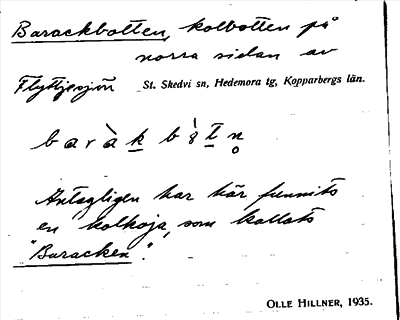 Barackbotten, kolbotten på
norra sidan av
Flyttjesjön St. Skedvi sn, Hedemora tg, Kopparbergs län.
Antagligen har här funnits
en kolkoja, som kallats
"Baracken".
OLLE HILLNER, 1935.